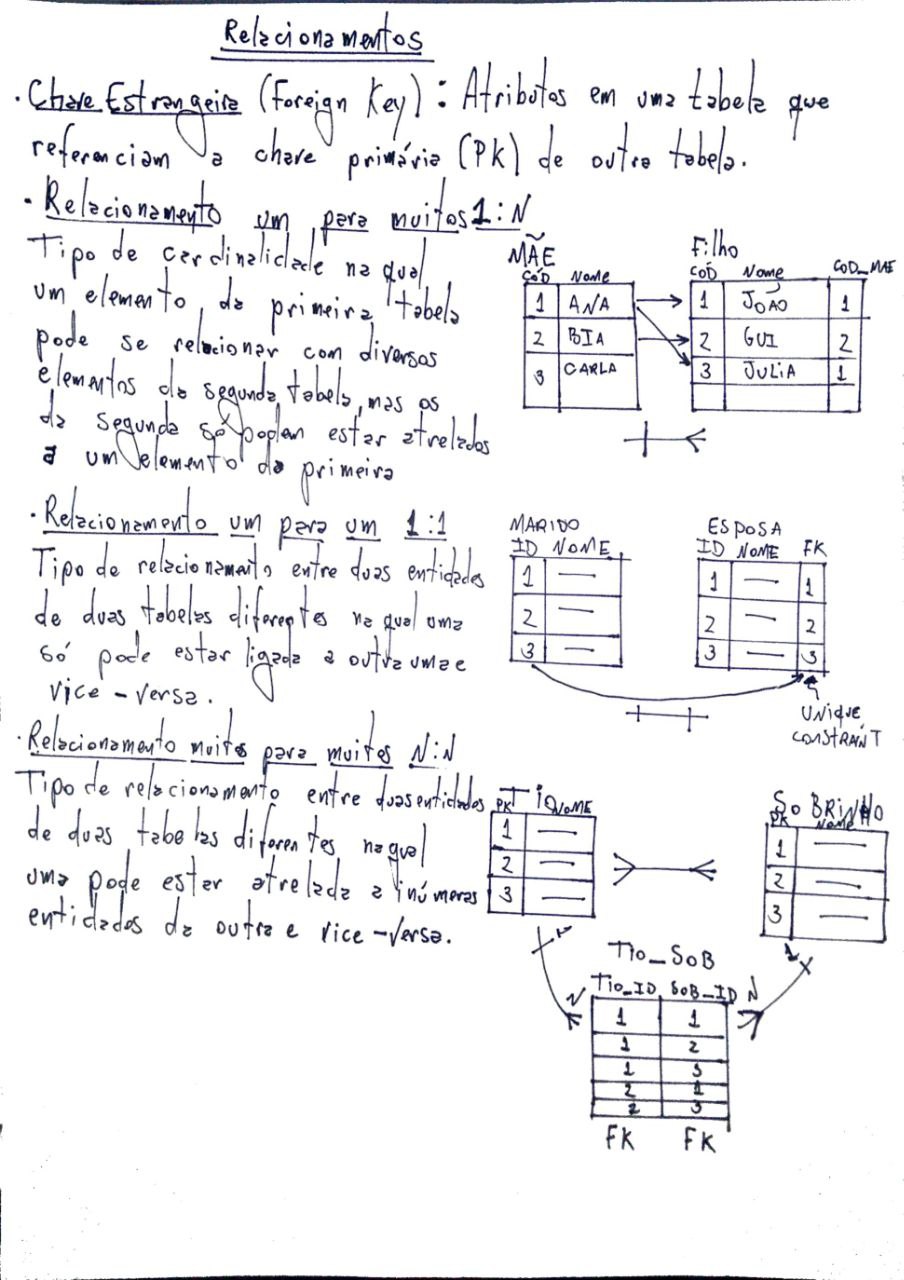 Relacionamentos
· Chave Estrangeira (Foreign Key): Atributos em uma tabela que
referenciam a chave primária (PK) de outra tabela.
· Relacionamento um para muitos 1:N
Tipo de cardinalidade na qual
um elemento da primeira tabela
pode se relacionar com diversos
elementos da segunda tabela, mas os
da segunda só podem estar atrelados
a um elemento da primeira
MÃE
CÓD Nome
1 ANA
2 BIA
3 CARLA
Filho
CÓD Nome COD_MAE
1 JOÃO 1
2 GUI 2
3 JULIA 1
· Relacionamento um para um 1:1
Tipo de relacionamento entre duas entidades
de duas tabelas diferentes na qual uma
só pode estar ligada a outra uma e
vice-versa.
MARIDO
ID NOME
1
2
3
ESPOSA
ID NOME FK
1 1
2 2
3 3
UNIQUE
CONSTRAINT
· Relacionamento muitos para muitos N:N
Tipo de relacionamento entre duas entidades
de duas tabelas diferentes na qual
uma pode estar atrelada a inúmeras
entidades da outra e vice-versa.
TIO
PK NOME
1
2
3
SOBRINHO
PK NOME
1
2
3
1
1
TIO_SOB
N TIO_ID SOB_ID N
1 1
1 2
1 3
2 1
2 3
FK FK